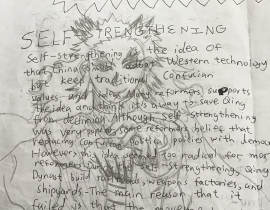 SELF STRENGTHENING
Self-strengthening the idea of
that China adopt Western technology
but keep traditional Confucian
values and idea. Many reformers support
the idea and think it's a way to save Qing
from Although self-strengthening
was very some reformers belief that
replacing confucian politics with
However this idea seemed too radical for most
reformers self-strengthening, Qing
Dynasty build railroads, weapons factories, and
shipyards. The main reason that it
failed is that the